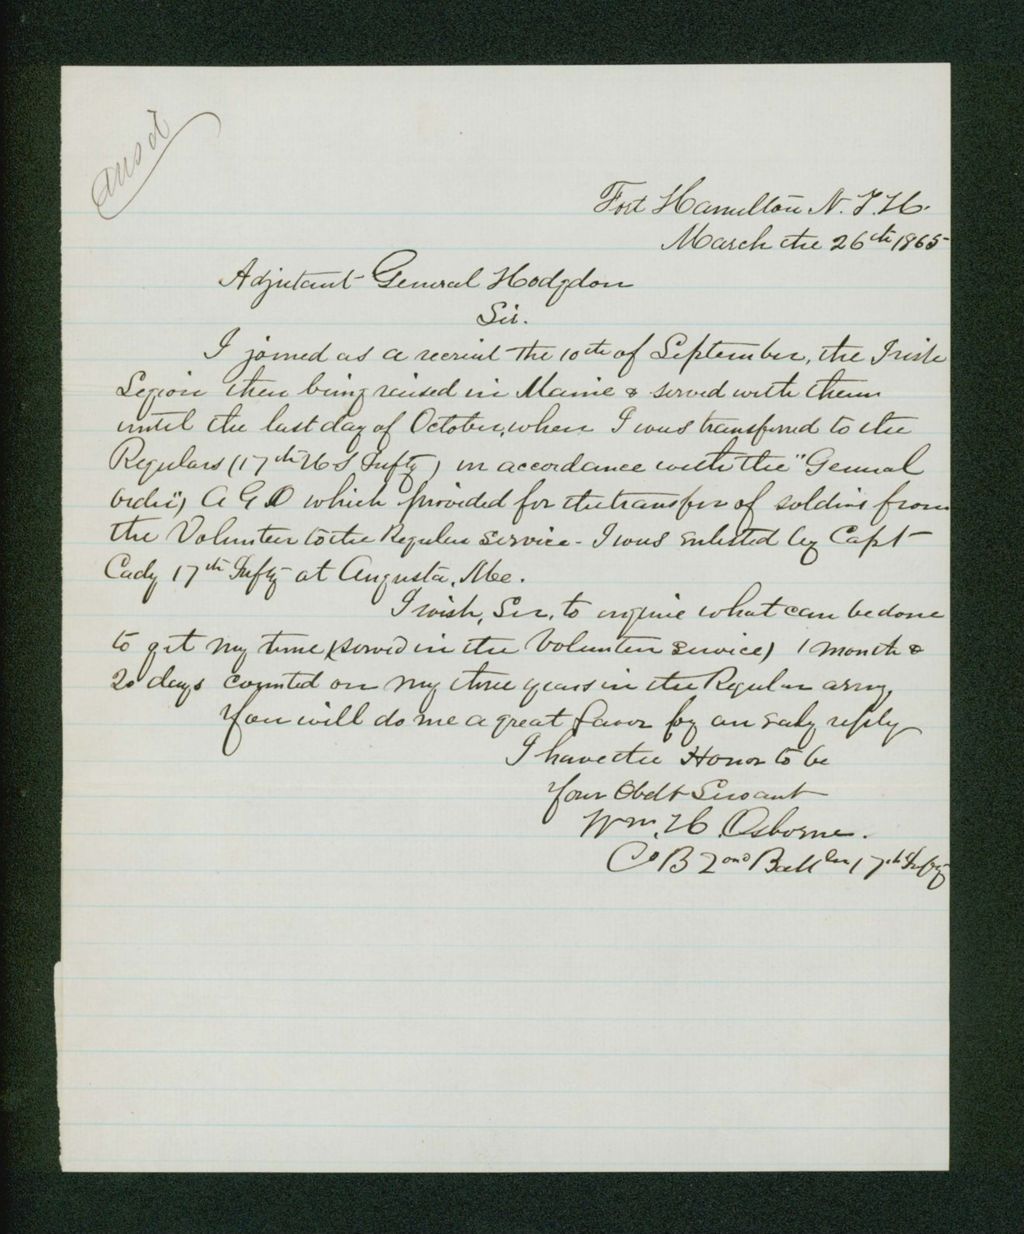 Ansd
Fort Hamilton N. Y. H.
March the 26th 1865
Adjutant General Hodgdon
Sir.
I joined as a recruit the 10th of September, the Irish
Legion then being raised in Maine & served with them
until the last day of October, when I was transferred to the
Regulars (17th U S Infty) in accordance with the "General
order") A G O which provided for the transfer of soldiers from
the Volunteer to the Regular Service - I was enlisted by Capt
Cady 17th Infty at Augusta, Me.
I wish, Sir, to inquire what can be done
to get my time (served in the Volunteer service) 1 month &
20 days counted on my three years in the Regular army,
You will do me a great favor by an early reply
I have the Honor to be
Your Obdt Servant
Wm. H. Osborne.
Co B 2nd Battln 17th Infty